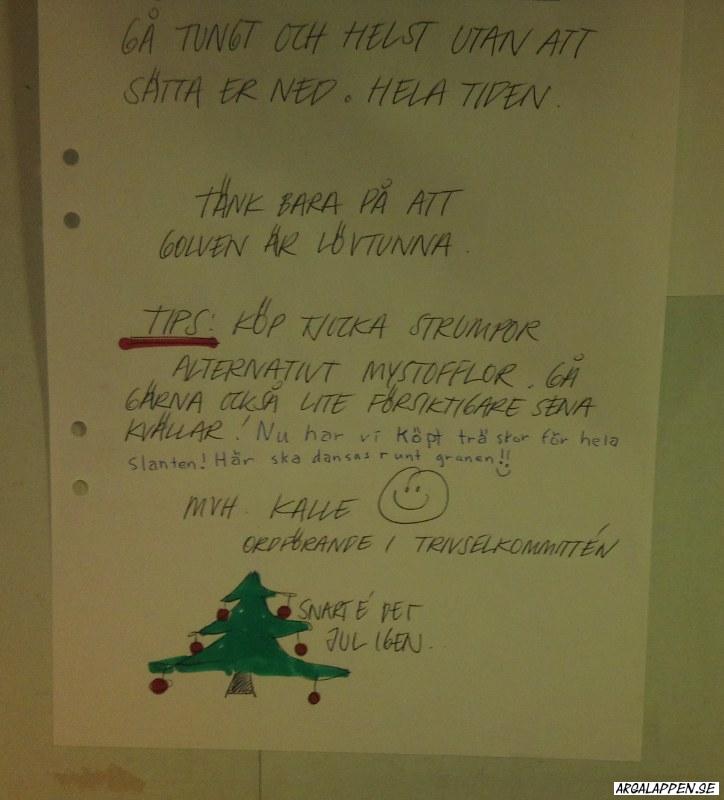 GÅ TUNGT OCH HELST UTAN ATT
SÄTTA ER NED. HELA TIDEN.
TÄNK BARA PÅ ATT
GOLVEN ÄR LÖVTUNNA.
TIPS: KÖP TJOCKA STRUMPOR
ALTERNATIVT MYSTOFFLOR. GÅ
GÄRNA OCKSÅ LITE FÖRSIKTIGARE SENA
KVÄLLAR! Nu har vi köpt trä skor för hela
slanten! Här ska dansas runt granen!!
MVH. KALLE
ORDFÖRANDE I TRIVSELKOMMITTÉN
SNART É DET
JUL IGEN.
ARGALAPPEN.SE